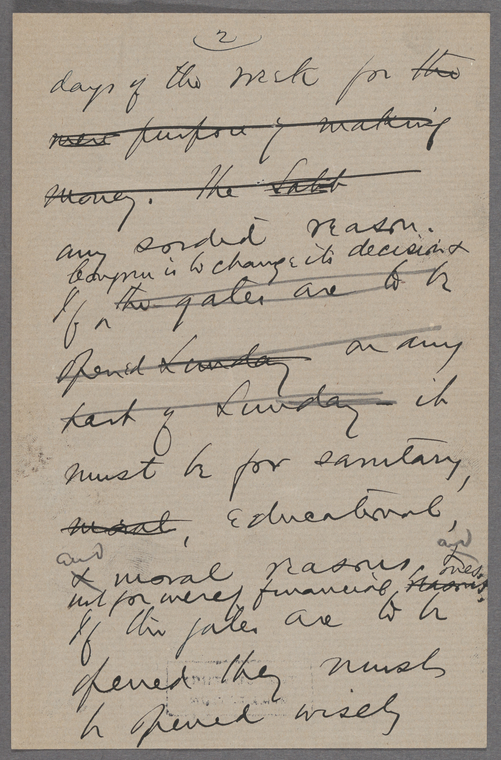 2
days of the week for the
mere purpose of making
money. The Sabb
any sordid reason.
Congress is to change its decision
If the gates are to be
opened Sunday or any
part of Sunday it
must be for sanitary,
moral, Educational,
and
& moral reasons, and
not for merely financial reasons. ones.
If the gates are to be
opened they must
be opened wisely